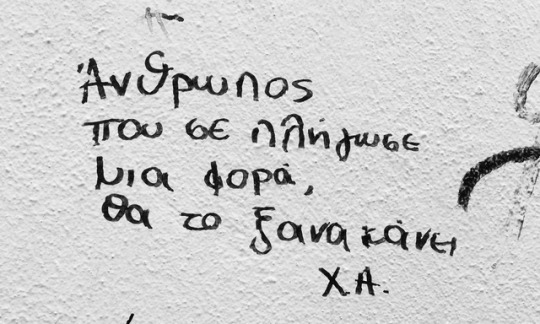 Άνθρωπος
που σε πλήγωσε
μια φορά,
θα το ξανακάνει
Χ.Α.